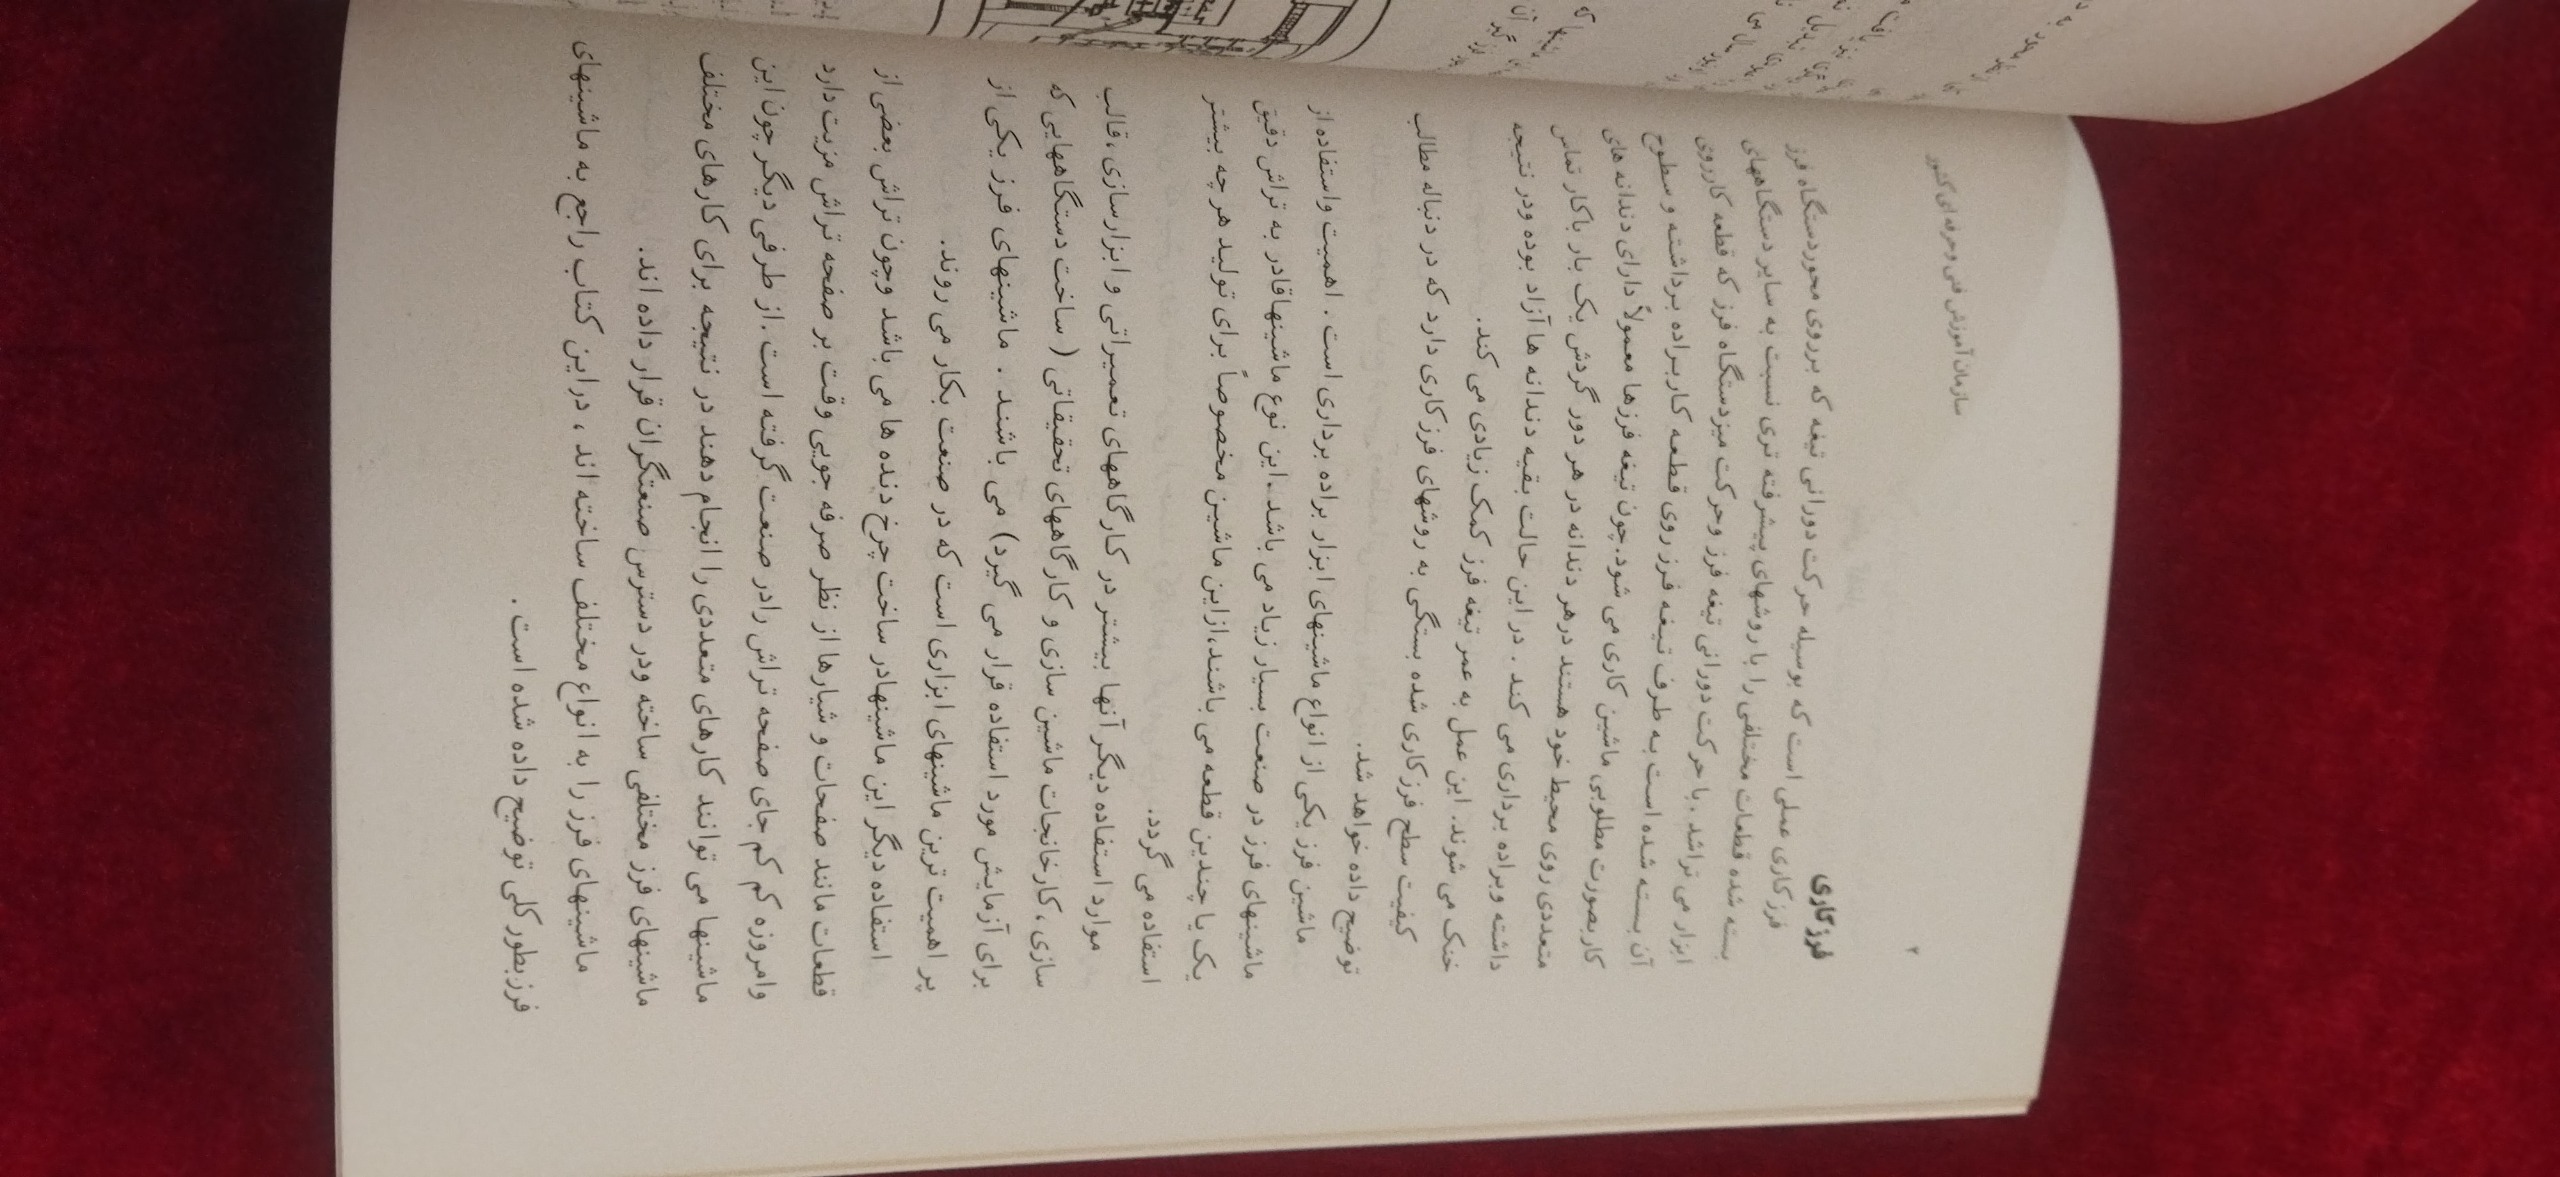 ۲
سازمان آموزش فنی وحرفه ای کشور
فرزکاری
فرزکاری عملی است که بوسیله حرکت دورانی تیغه که برروی محوردستگاه فرز
بسته شده قطعات مختلفی را با روشهای پیشرفته تری نسبت به سایر دستگاههای
ابزار می تراشد. با حرکت دورانی تیغه فرز وحرکت میزدستگاه فرز که قطعه کارروی
آن بسته شده است به طرف تیغه فرز روی قطعه کار براده برداشته و سطوح
کاربصورت مطلوبی ماشین کاری می شود. چون تیغه فرزها معمولاً دارای دندانه های
متعددی روی محیط خود هستند درهر دندانه در هر دور گردش یک بار باکار تماس
داشته وبراده برداری می کند . در این حالت بقیه دندانه ها آزاد بوده ودر نتیجه
خنک می شوند. این عمل به عمر تیغه فرز کمک زیادی می کند.
کیفیت سطح فرزکاری شده بستگی به روشهای فرزکاری دارد که در دنباله مطالب
توضیح داده خواهد شد.
ماشین فرز یکی از انواع ماشینهای ابزار براده برداری است . اهمیت واستفاده از
ماشینهای فرز در صنعت بسیار زیاد می باشد. این نوع ماشینهاقادر به تراش دقیق
یک یا چندین قطعه می باشند،ازاین ماشین مخصوصاً برای تولید هر چه بیشتر
استفاده می گردد.
موارد استفاده دیگر آنها بیشتر در کارگاههای تعمیراتی و ابزارسازی ، قالب
سازی ، کارخانجات ماشین سازی و کارگاههای تحقیقاتی ( ساخت دستگاههایی که
برای آزمایش مورد استفاده قرار می گیرد) می باشند . ماشینهای فرز یکی از
پر اهمیت ترین ماشینهای ابزاری است که در صنعت بکار می روند.
استفاده دیگر این ماشینهادر ساخت چرخ دنده ها می باشد وچون تراش بعضی از
قطعات مانند صفحات و شیارها از نظر صرفه جویی وقت بر صفحه تراش مزیت دارد
وامروزه کم کم جای صفحه تراش رادر صنعت گرفته است . از طرفی دیگر چون این
ماشینها می توانند کارهای متعددی را انجام دهند در نتیجه برای کارهای مختلف
ماشینهای فرز مختلفی ساخته ودر دسترس صنعتگران قرار داده اند.
ماشینهای فرز را به انواع مختلف ساخته اند ، دراین کتاب راجع به ماشینهای
فرزبطورکلی توضیح داده شده است .